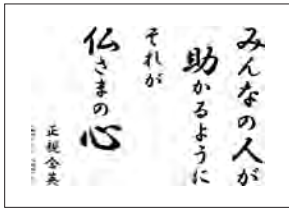 みんなの人が
助かるように
それが
仏さまの心
正税金英